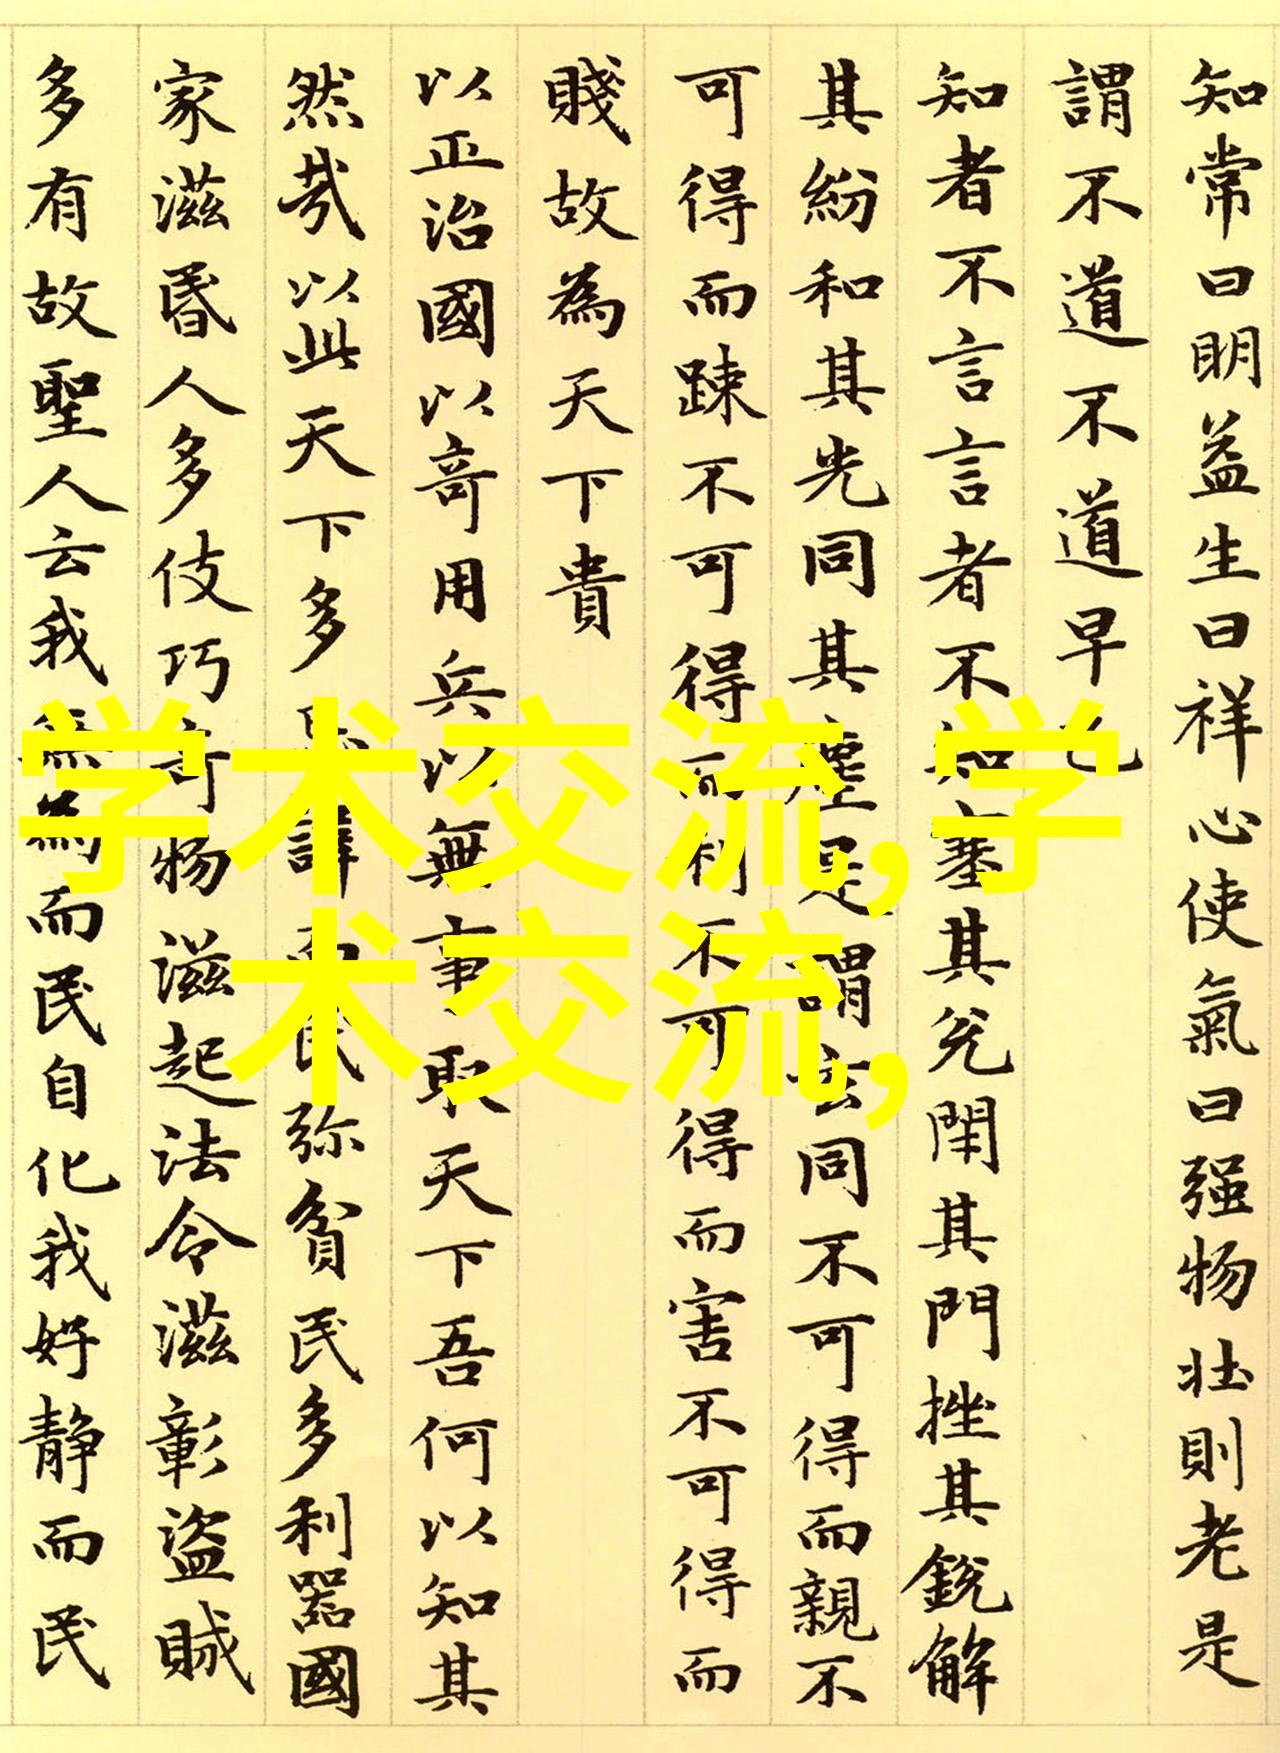 知常曰明益生曰祥心使氣曰强物壯則老是
謂不道不道早已
知者不言言者不知塞其兊閉其門挫其銳解
其紛和其光同其塵是謂玄同不可得而親不
可得而踈不可得而利不可得而害不可得而
賤故為天下貴
以正治國以奇用兵以無事取天下吾何以知其
然哉以此天下多忌諱而民弥貧民多利器國
家滋昬人多伎巧奇物滋起法令滋彰盜賊
多有故聖人云我無為而民自化我好静而民
学术交流,学
术交流,